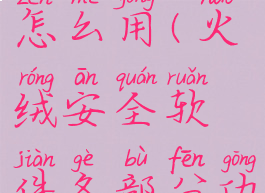 zěn me yòng huǒ
怎么用(火
róng ān quán ruǎn
绒安全软
jiàn gè bù fēn gōng
件各部分功